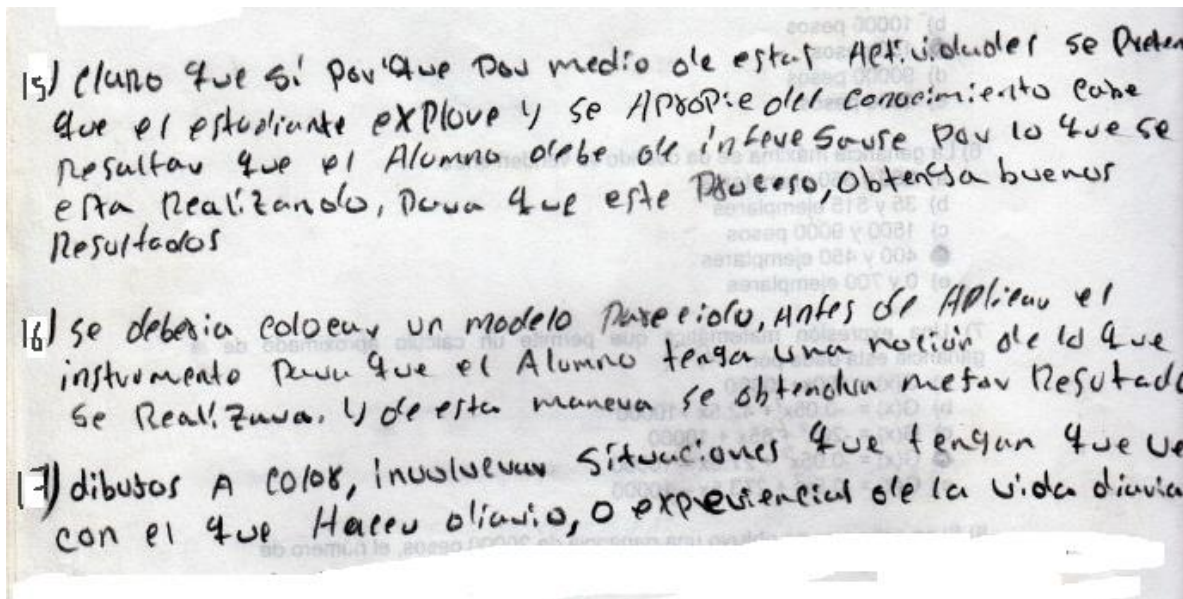 15) claro que sí porque por medio de estas Actividades se Preten
que el estudiante explore y se Apropie del conocimiento cabe
Resaltar que el Alumno debe de interesarse por lo que se
esta Realizando, para que este Proceso, obtenga buenos
Resultados
16) se deberia colocar un modelo Parecido, antes de Aplicar el
instrumento para que el Alumno tenga una noción de lo que
se Realizara. y de esta manera se obtendra mejor Resultado
17) dibujos A color, involucrar situaciones que tengan que ve
con el que Hacer diario, o experiencias de la vida diaria